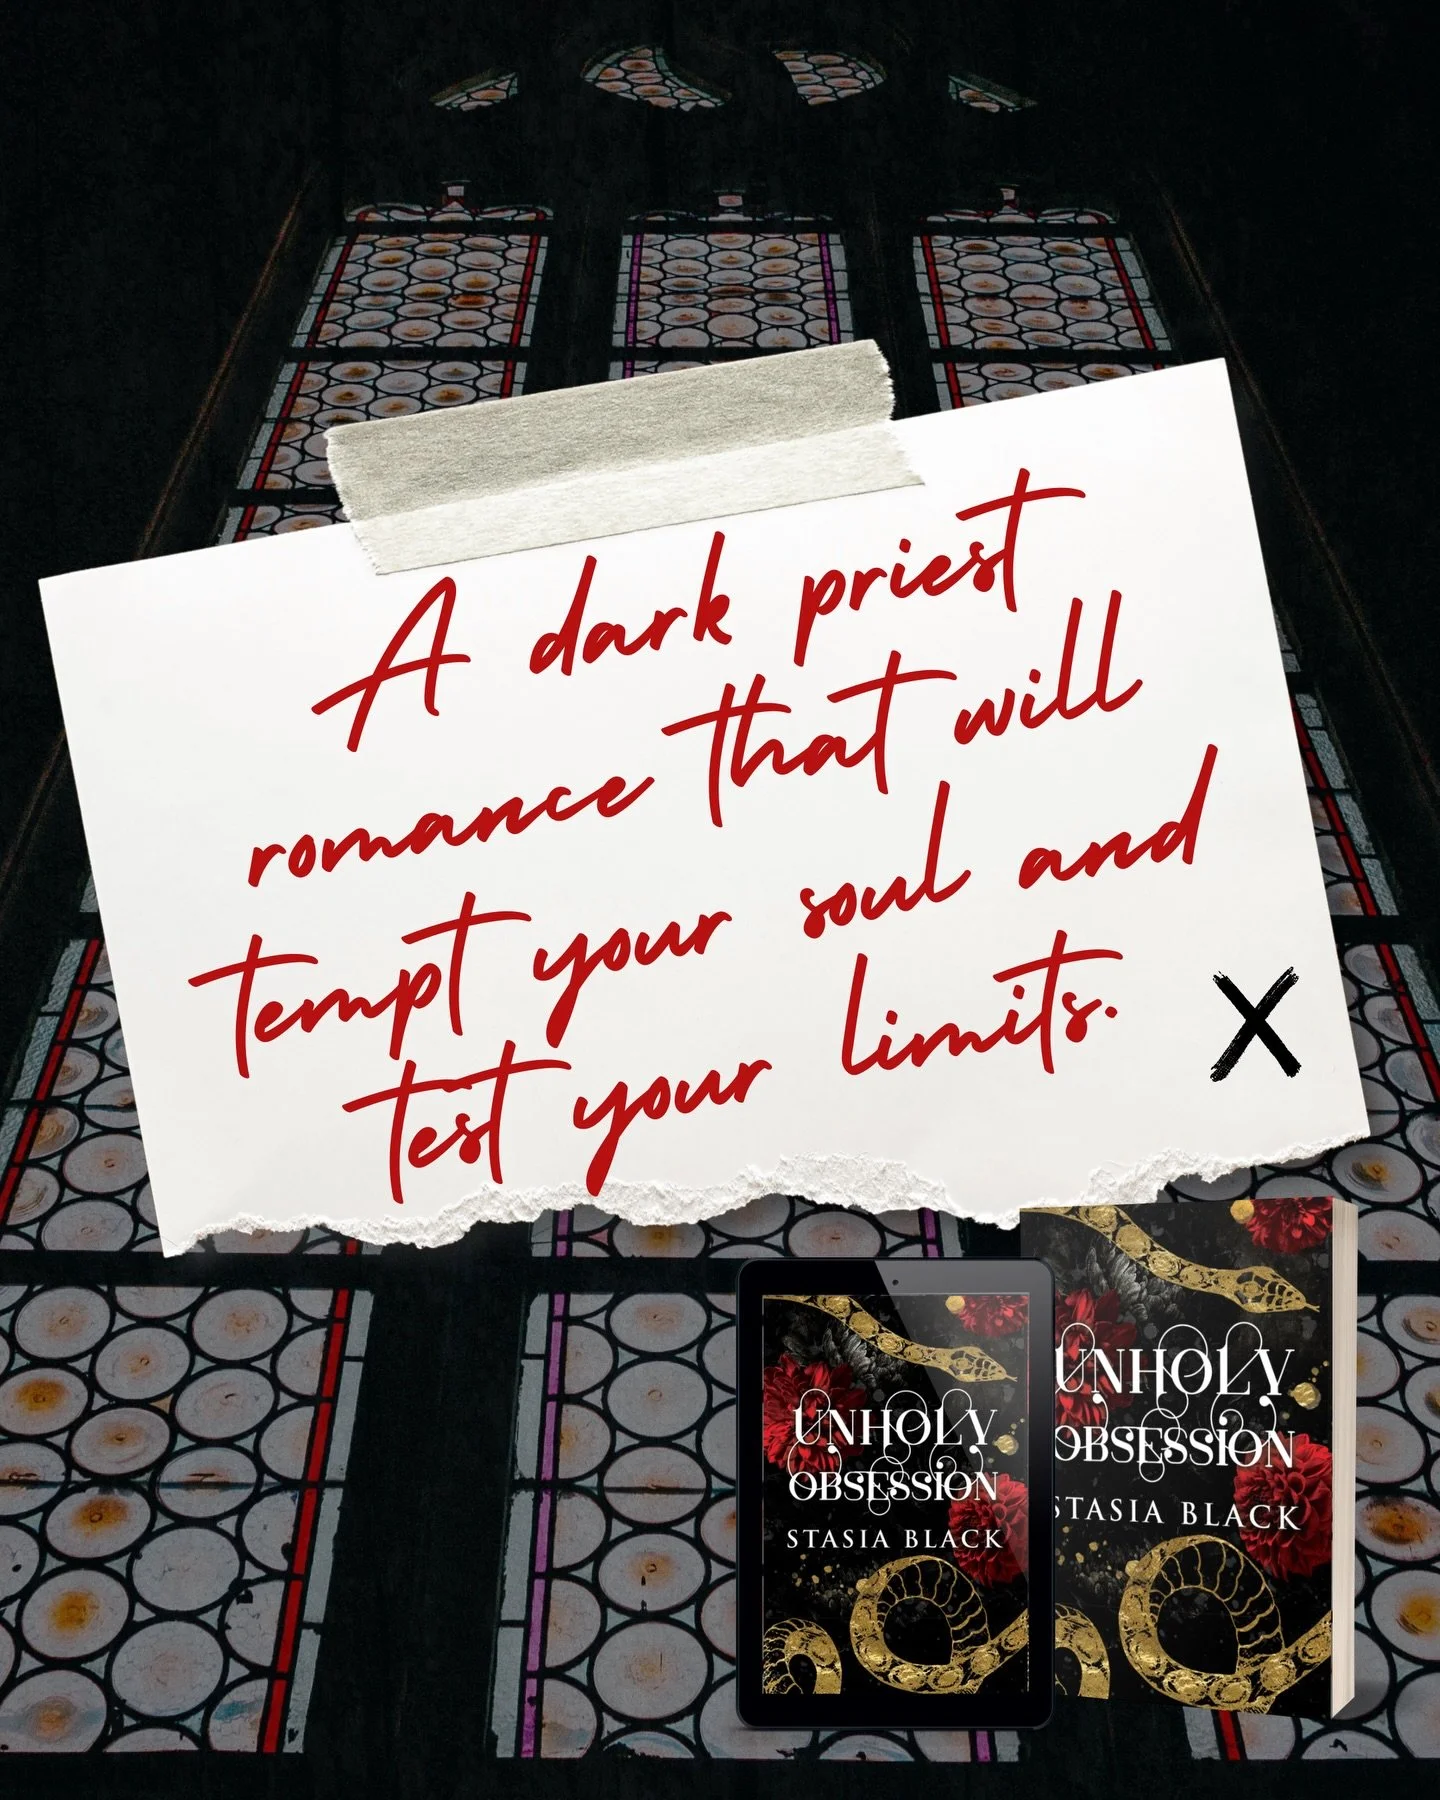 A dark priest
romance that will
tempt your soul and
test your limits.
X
UNHOLY
OBSESSION
STASIA BLACK
UNHOLY
OBSESSION
STASIA BLACK